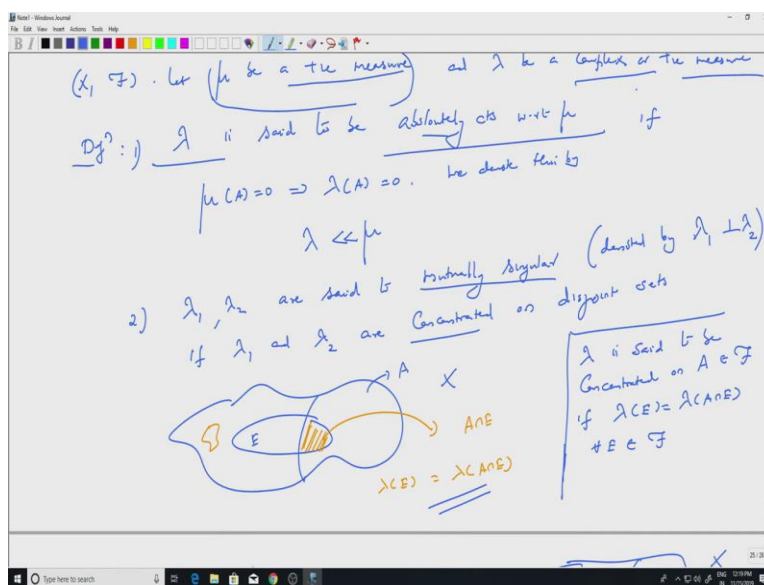 Note1 - Windows Journal
File Edit View Insert Actions Tools Help
(X, F). Let (μ be a +ve measure) and λ be a Complex or +ve measure
Defn: 1) λ is said to be absolutely cts w.r.t μ if
μ(A)=0 => λ(A)=0. We denote this by
λ << μ
2) λ1, λ2 are said to mutually singular (denoted by λ1 ⊥ λ2)
if λ1 and λ2 are Concentrated on disjoint sets
λ is said to be
Concentrated on A ∈ F
if λ(E) = λ(A∩E)
∀ E ∈ F
A
X
E
A∩E
λ(E) = λ(A∩E)
X
Type here to search
ENG 12:19 PM
IN